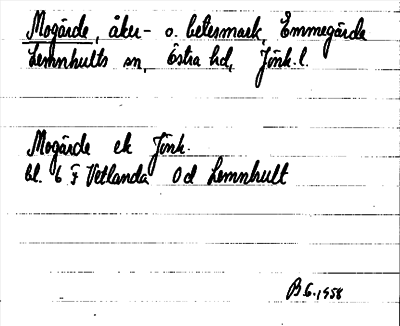 Mogärde, åker- o. betesmark, Emmegärde
Lemnhults sn, Östra hd, Jönk. l.
Mogärde ek Jönk.
bl. 6 F Vetlanda 0d Lemnhult
B.G. 1958